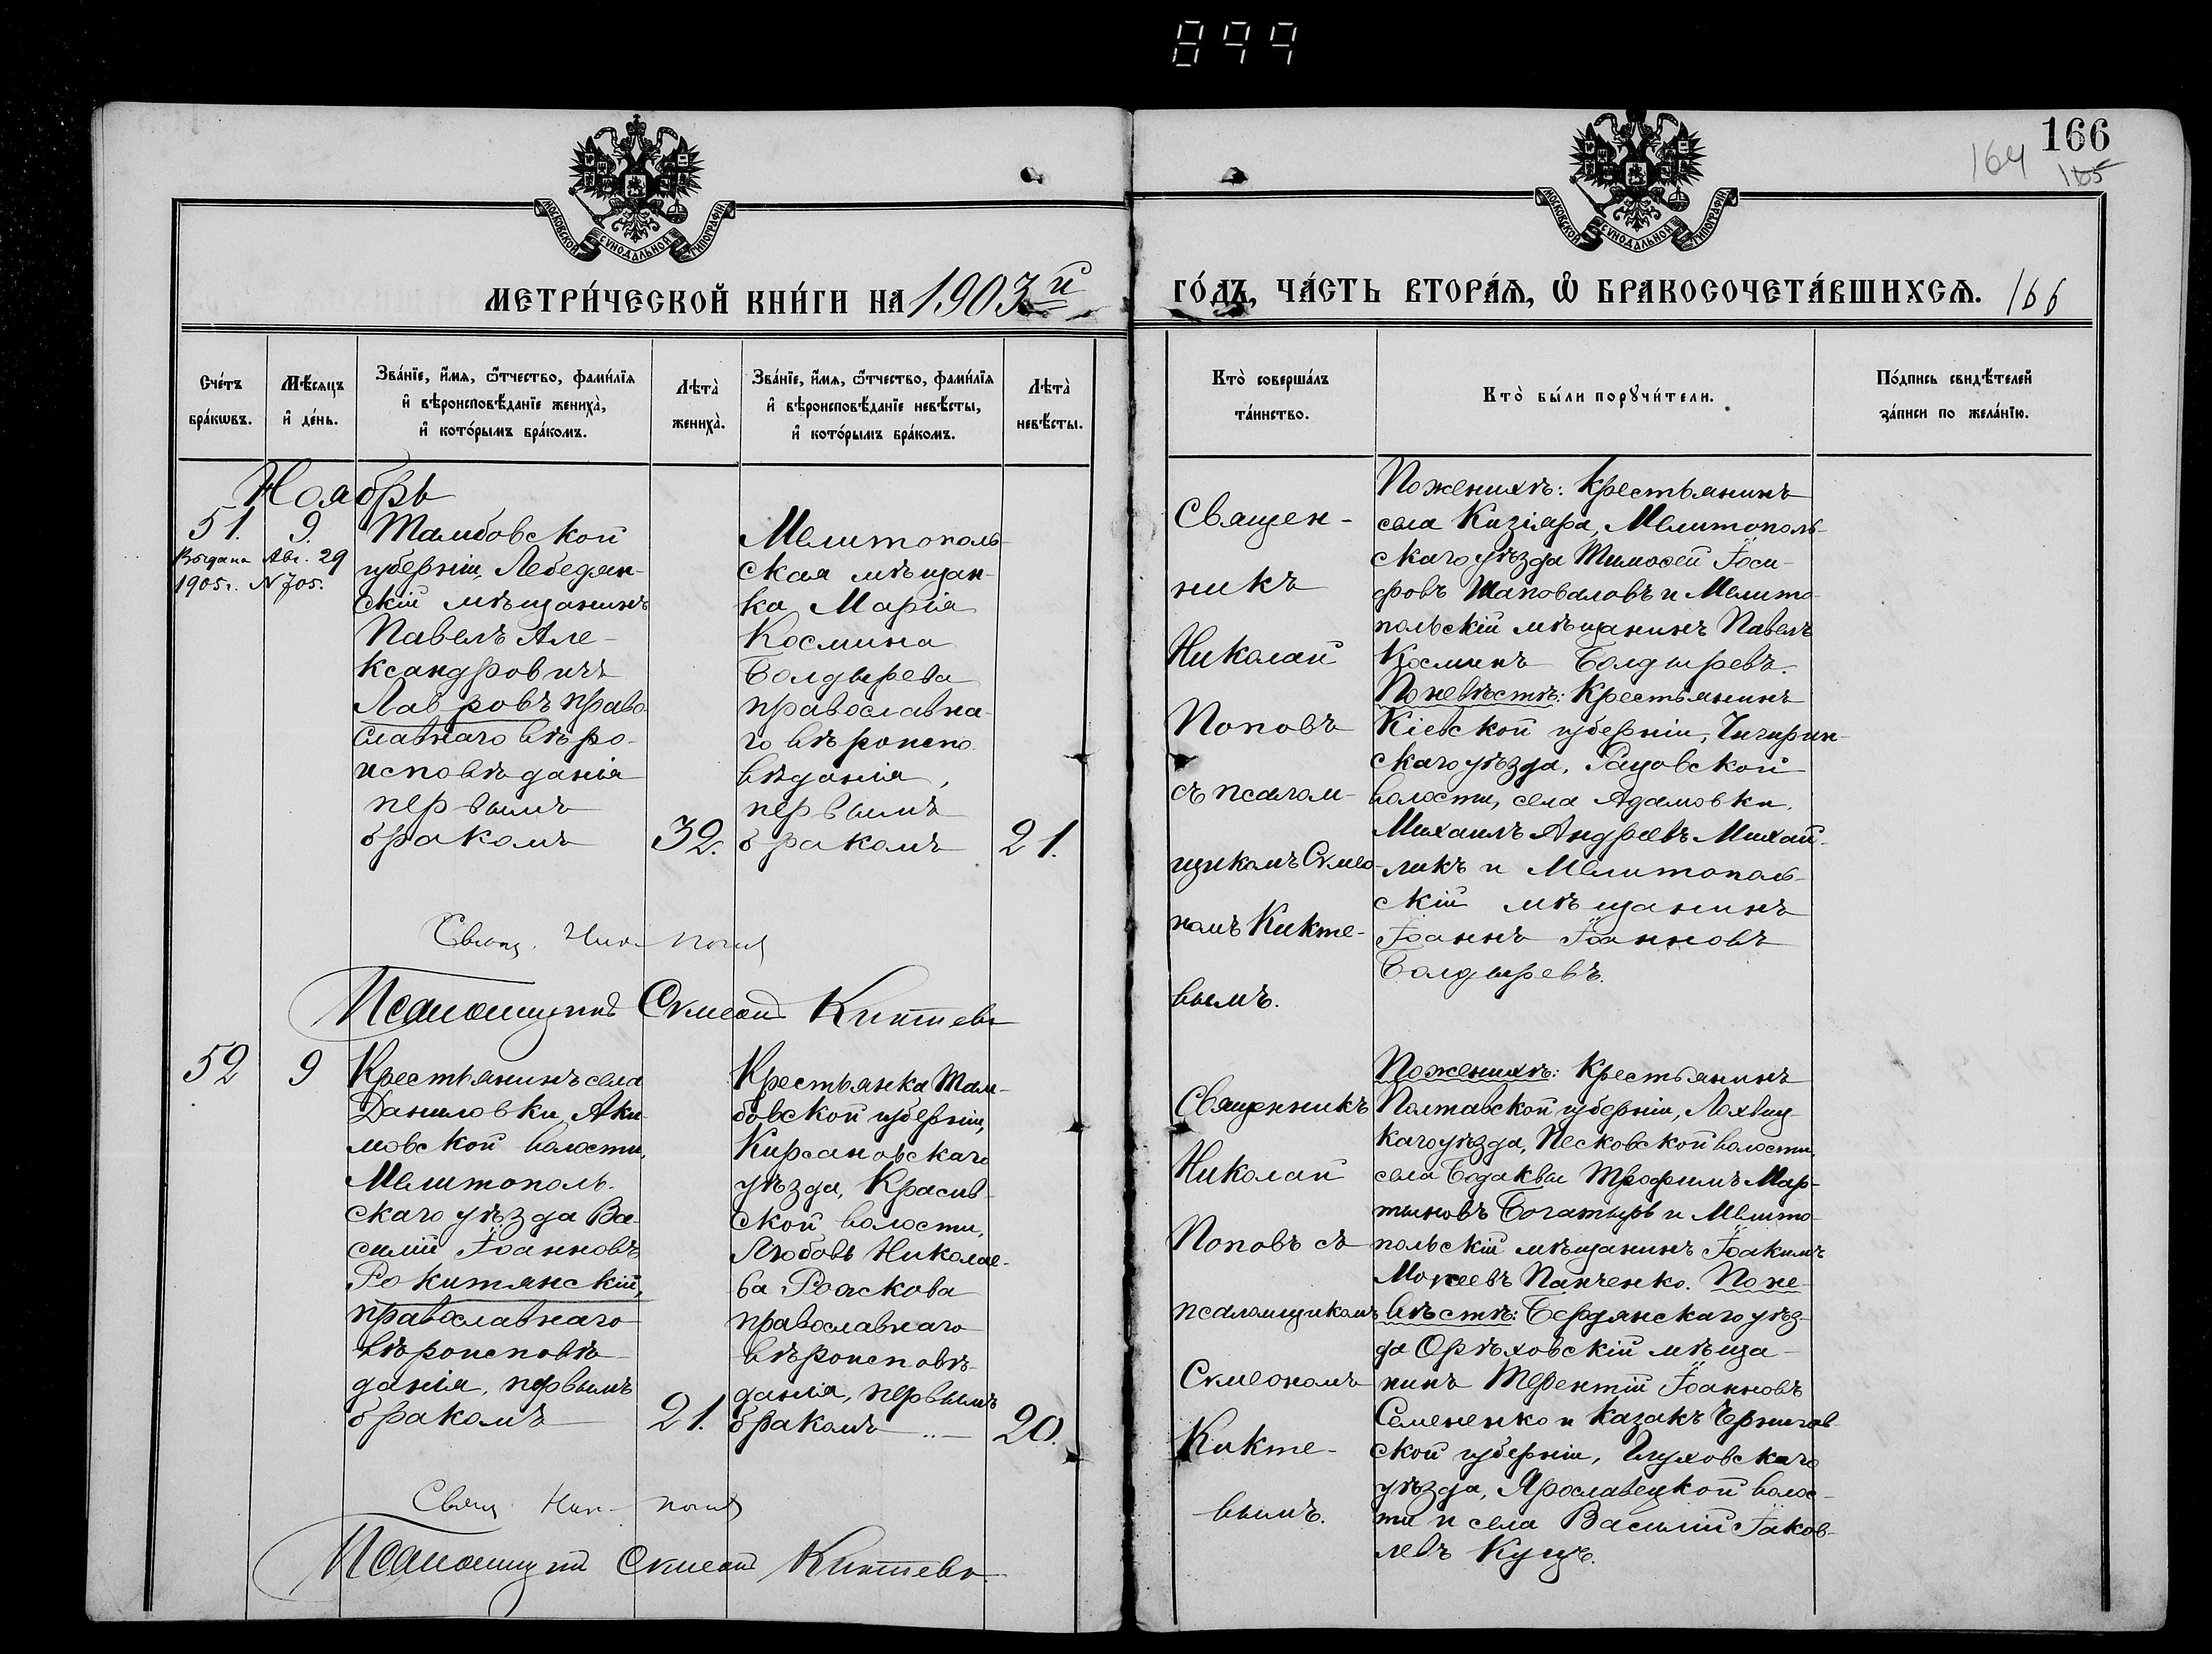 899
166
164
165
МОСКОВСКОЙ СУНОДАЛЬНОЙ ТИПОГРАФІИ
МОСКОВСКОЙ СУНОДАЛЬНОЙ ТИПОГРАФІИ
МЕТРИ́ЧЕСКОЙ КНИ́ГИ НА 1903й
ГО́ДЪ, ЧА́СТЬ ВТОРА́Я, Ѡ БРАКОСОЧЕТА́ВШИХСѦ. 166
Сче́тъ
бра́кѡвъ.
Мѣ́сяцъ
и де́нь.
Зва́нїе, и́мѧ, ѻ҆́тчество, фами́лїѧ
и҆ вѣроисповѣ́данїе жениха̀,
и҆ кото́рымъ бра́комъ.
Лѣта̀
жениха̀.
Зва́нїе, и́мѧ, ѻ҆́тчество, фами́лїѧ
и҆ вѣроисповѣ́данїе невѣ́сты,
и҆ кото́рымъ бра́комъ.
Лѣта̀
невѣ́сты.
Кто̀ соверша́лъ
та́инство.
Кто̀ бы́ли порꙋчи́тели.
По́дпись свидѣ́телей
за́писи по жела́нїю.
Ноябрь
51. 9.
Выдана Авг. 29
1905г. N 705.
Тамбовской
губерніи, Лебедян-
скій мѣщанинъ
Павелъ Але-
ксандровичъ
Лавровъ право-
славнаго вѣро-
исповѣданія
первымъ
бракомъ
32.
Мелитополь-
ская мѣщан-
ка Марія
Космина
Болдырева
православна-
го вѣроиспо-
вѣданія,
первымъ
бракомъ
21.
Священ-
никъ
Николай
Поповъ
съ псалом-
щикомъ Симео-
номъ Кикте-
вымъ.
По женихѣ: Крестьянинъ
села Кизіяра, Мелитополь-
скаго уѣзда Тимоѳей Іоси-
фовъ Шаповаловъ и Мелито-
польскій мѣщанинъ Павелъ
Косминъ Болдыревъ.
По невѣстѣ: Крестьянинъ
Кіевской губерніи, Чигирин-
скаго уѣзда, Рацовской
волости, села Адамовки,
Михаилъ Андреевъ Михай-
ликъ и Мелитополь-
скій мѣщанинъ
Іоаннъ Іоанновъ
Болдыревъ.
Свящ. Ник. Поповъ
Псаломщикъ Симеонъ Киктевъ
52 9
Крестьянинъ села
Даниловки, Аки-
мовской волости,
Мелитополь-
скаго уѣзда Ва-
силій Іоанновъ
Рокитянскій,
православнаго
вѣроисповѣ-
данія, первымъ
бракомъ
21.
Крестьянка Там-
бовской губерніи,
Кирсановскаго
уѣзда, Красив-
ской волости,
Любовь Николае-
ва
православнаго
вѣроисповѣ-
данія, первымъ
бракомъ
20.
Священникъ
Николай
Поповъ съ
псаломщикомъ
Симеономъ
Кикте-
вымъ.
По женихѣ: Крестьянинъ
Полтавской губерніи, Лохвиц-
каго уѣзда, Песковской волости,
села Бодаквы Трофимъ Мар-
тыновъ Богатырь и Мелито-
польскій мѣщанинъ Іоакимъ
Моисеевъ Панченко. По не-
вѣстѣ: Бердянскаго уѣз-
да Орѣховскій мѣща-
нинъ Терентій Іоанновъ
Семененко и казакъ Чернигов-
ской губерніи, Глуховскаго
уѣзда, Ярославецкой волос-
ти и села Василій Іаков-
левъ Куцъ.
Свящ. Ник. Поповъ
Псаломщикъ Симеонъ Киктевъ